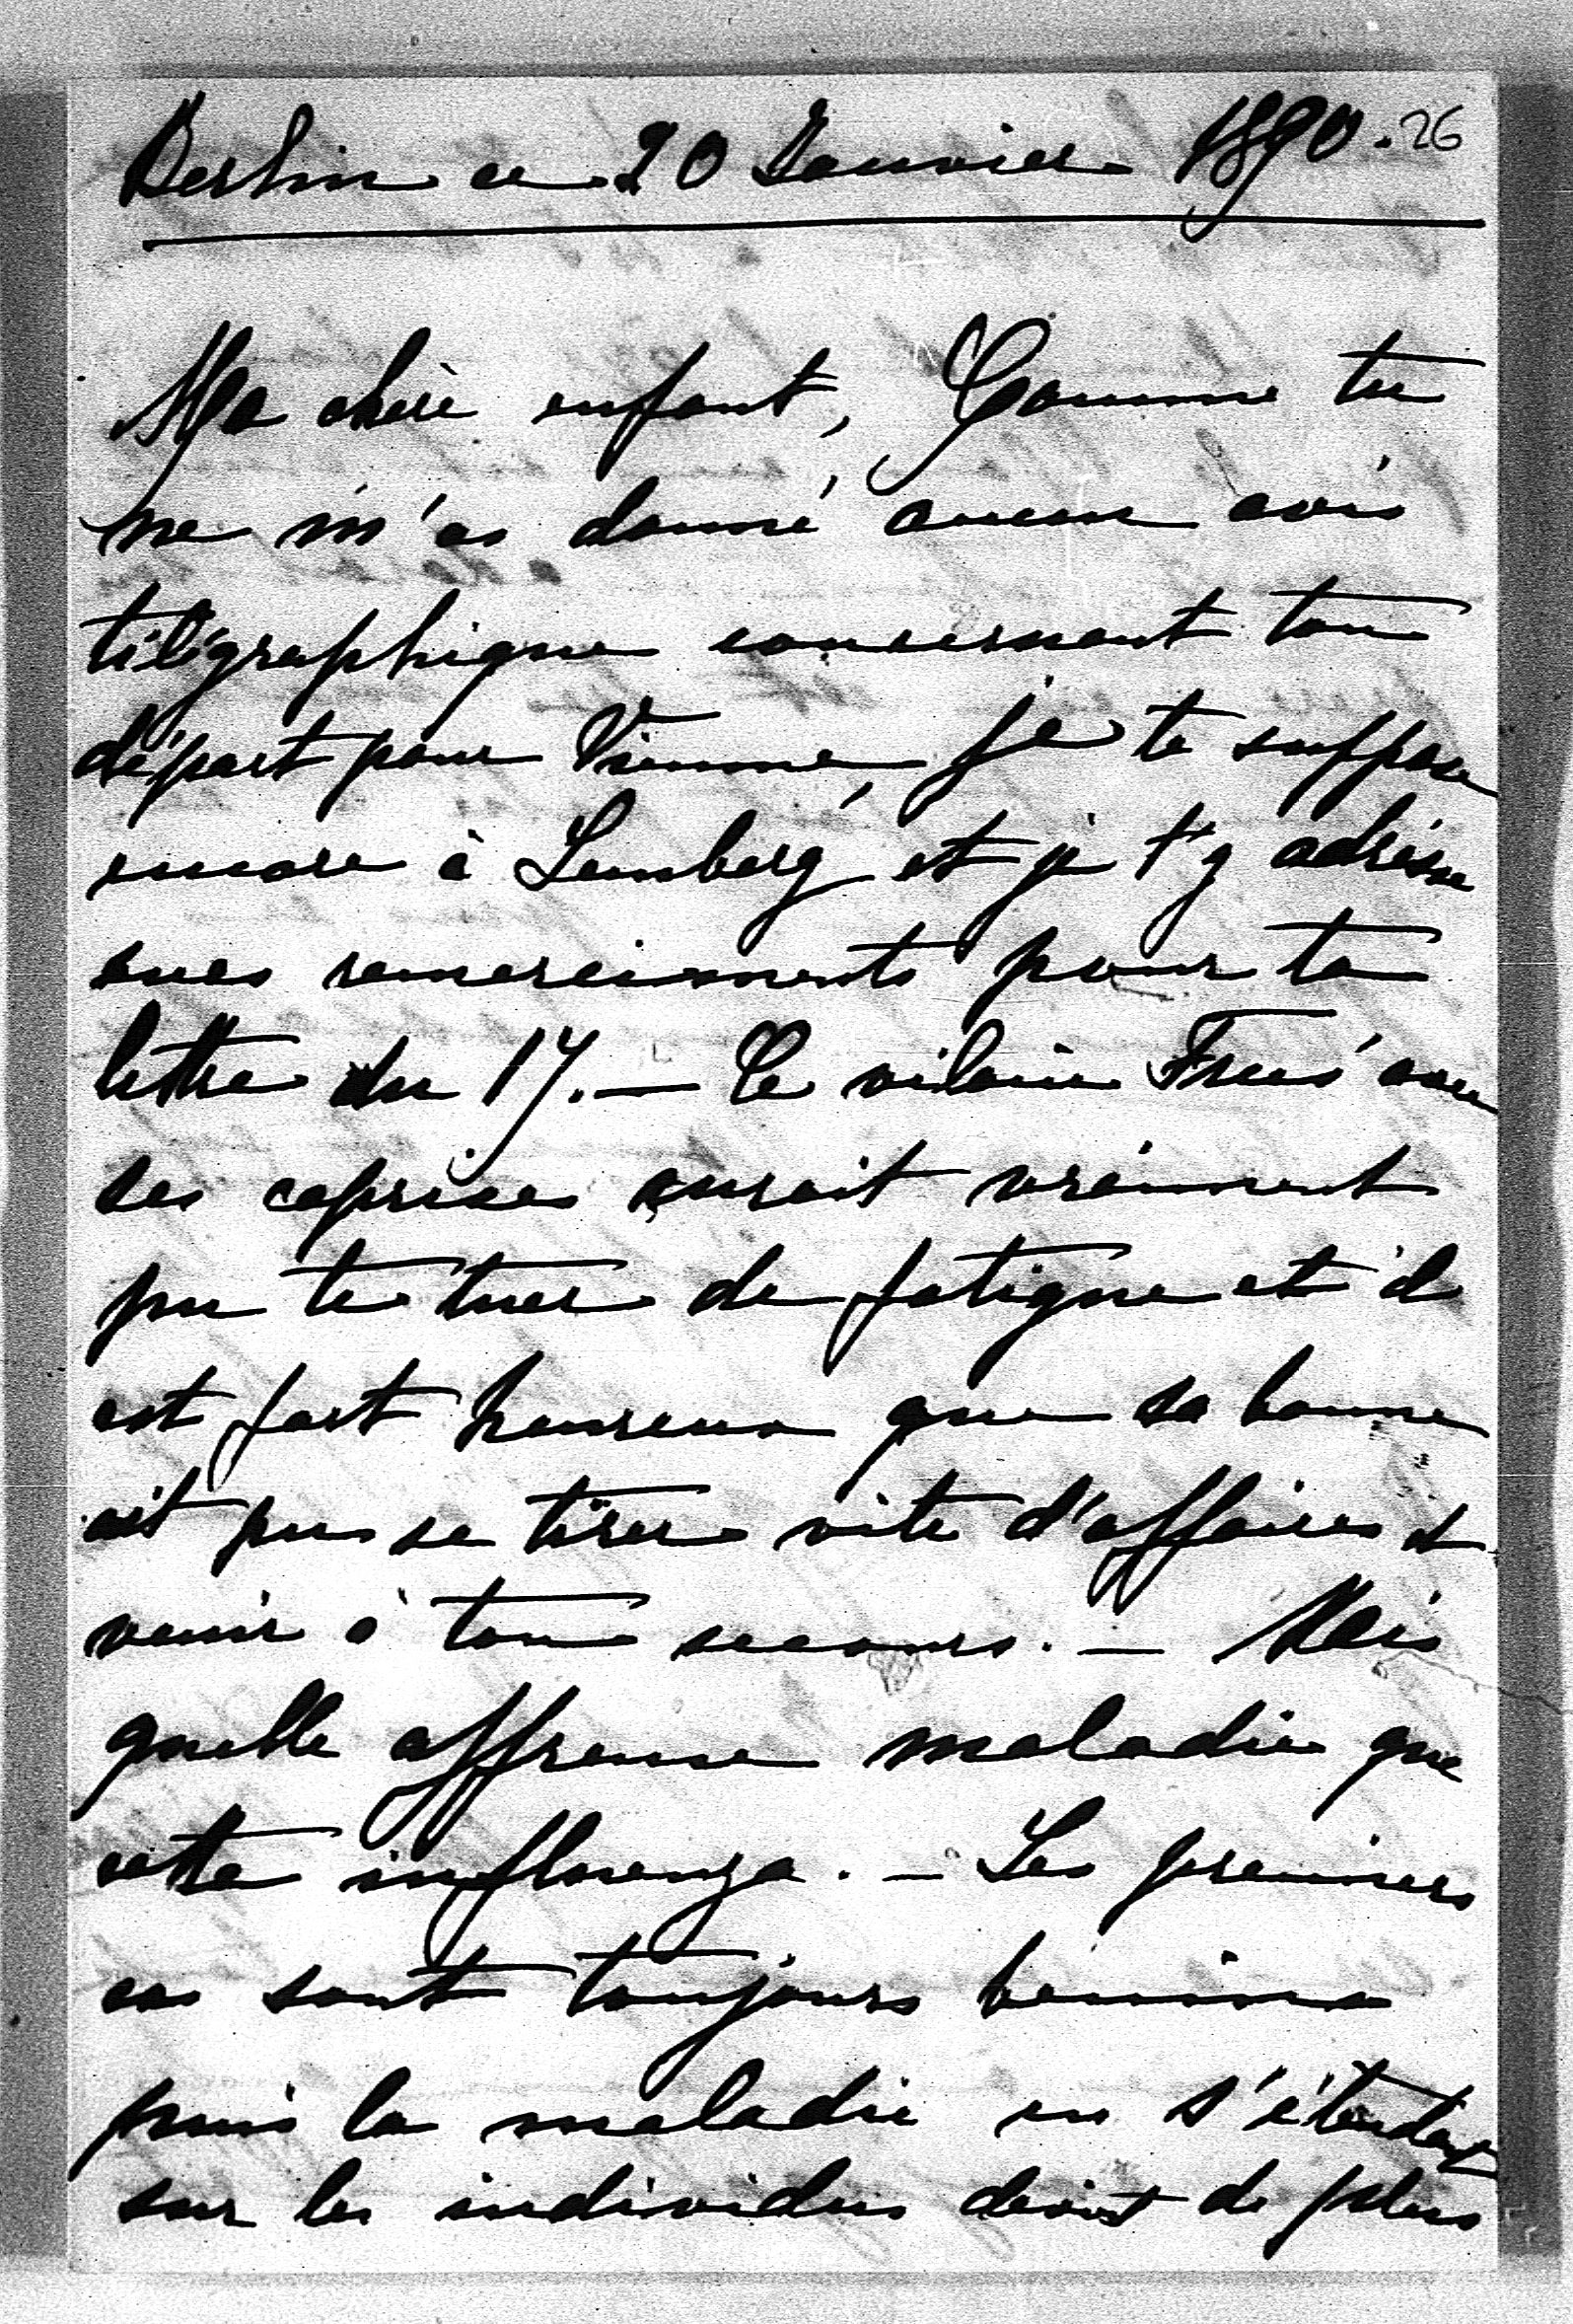 Berlin ce 20 Janvier 1890. 26
Ma chère enfant, Comme tu
ne m'as donné aucun avis
télégraphique concernant ton
départ pour Vienne, je te suppose
encore à Lemberg et je t'y adresse
mes remerciements pour ta
lettre du 17. — Ce vilain avec
ses caprices aurait vraiment
pu te tuer de fatigue et il
est fort heureux que sa bonne
ait pu se tirer vite d'affaires et
venir à ton secours. — Mais
quelle affreuse maladie que
cette influenza. — Les premiers
cas sont toujours bénins
puis la maladie en s'étendant
sur les individus devient de plus